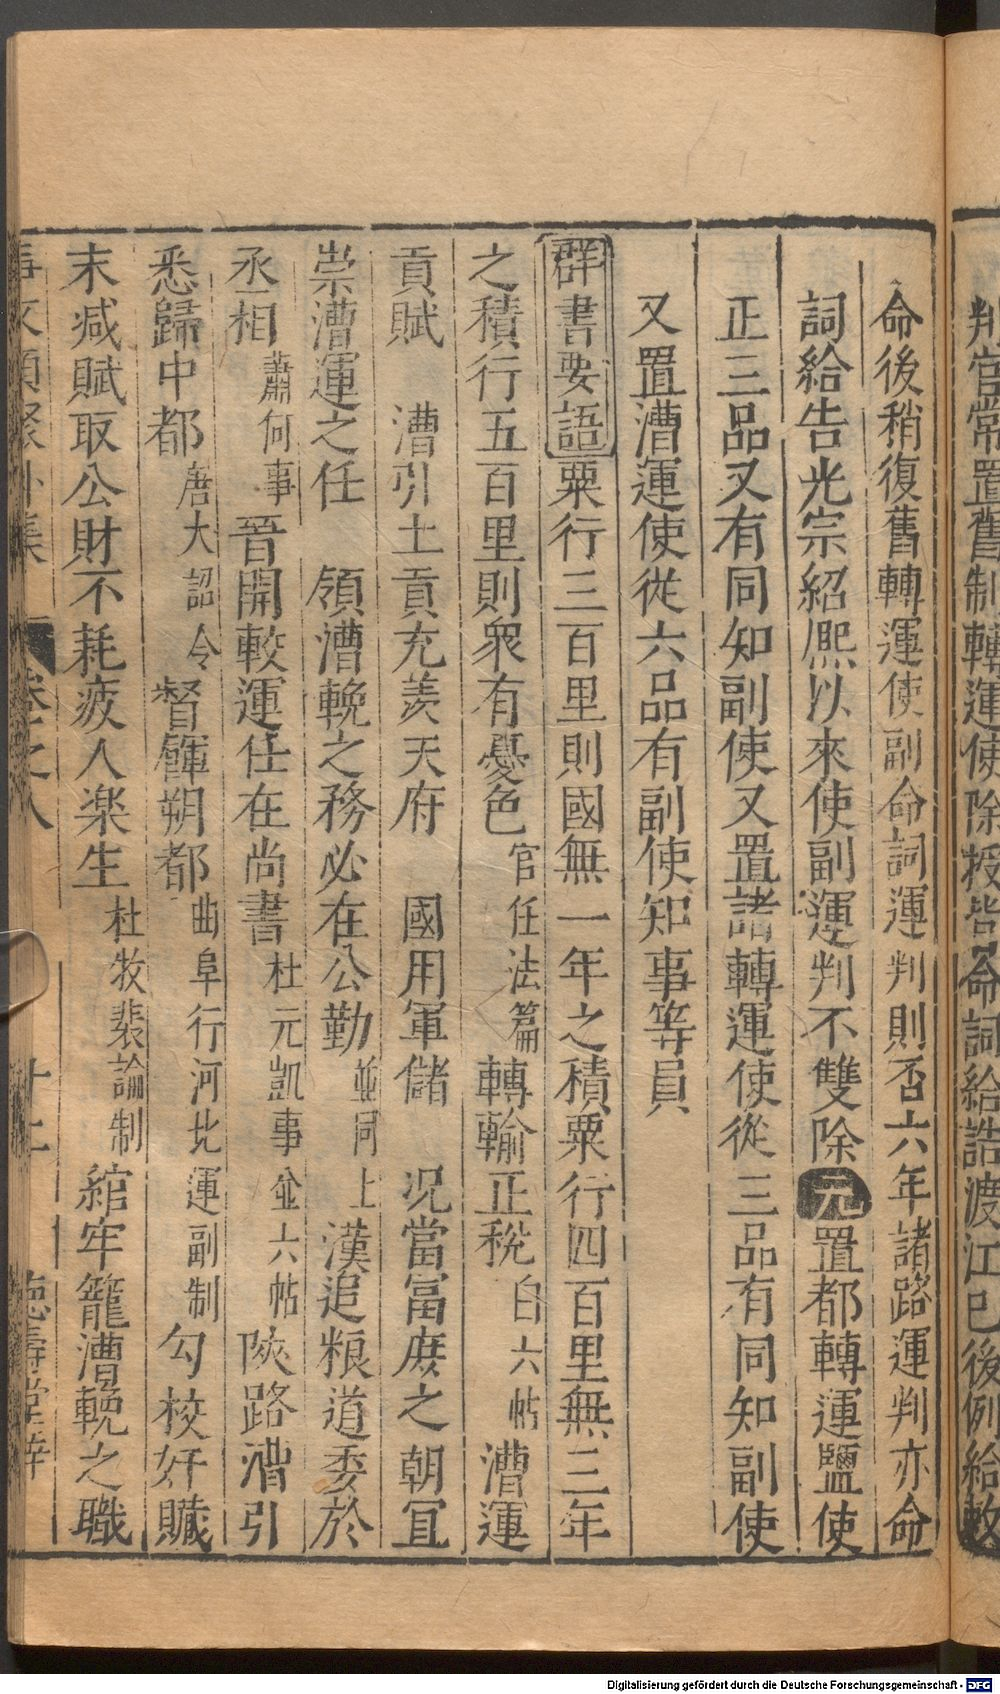 判官常置舊制轉運使除授皆命詞給誥渡江已後例給敕
命後稍復舊轉運使副命詞運判則否六年諸路運判亦命
詞給告光宗紹熈以來使副運判不雙除元置都轉運鹽使
正三品又有同知副使又置諸轉運使從三品有同知副使
又置漕運使從六品有副使知事等員
群書要語粟行三百里則國無一年之積粟行四百里無二年
之積行五百里則衆有憂色官任法篇轉輸正稅白六帖漕運
貢賦 漕引土貢充羡天府 國用軍儲 况當冨庶之朝冝
崇漕運之任 領漕輓之務必在公勤並同上漢追粮道委於
丞相蕭何事晉開較運任在尚書杜元凱事並六帖陝路漕引
悉歸中都唐大詔令督餫朔都曲阜行河北運副制勾校奸贓
末减賦取公財不耗疲人楽生杜牧裴論制綰牢籠漕輓之職
事文類聚外集 卷之八 十二 德壽堂梓
Digitalisierung gefördert durch die Deutsche Forschungsgemeinschaft - DFG